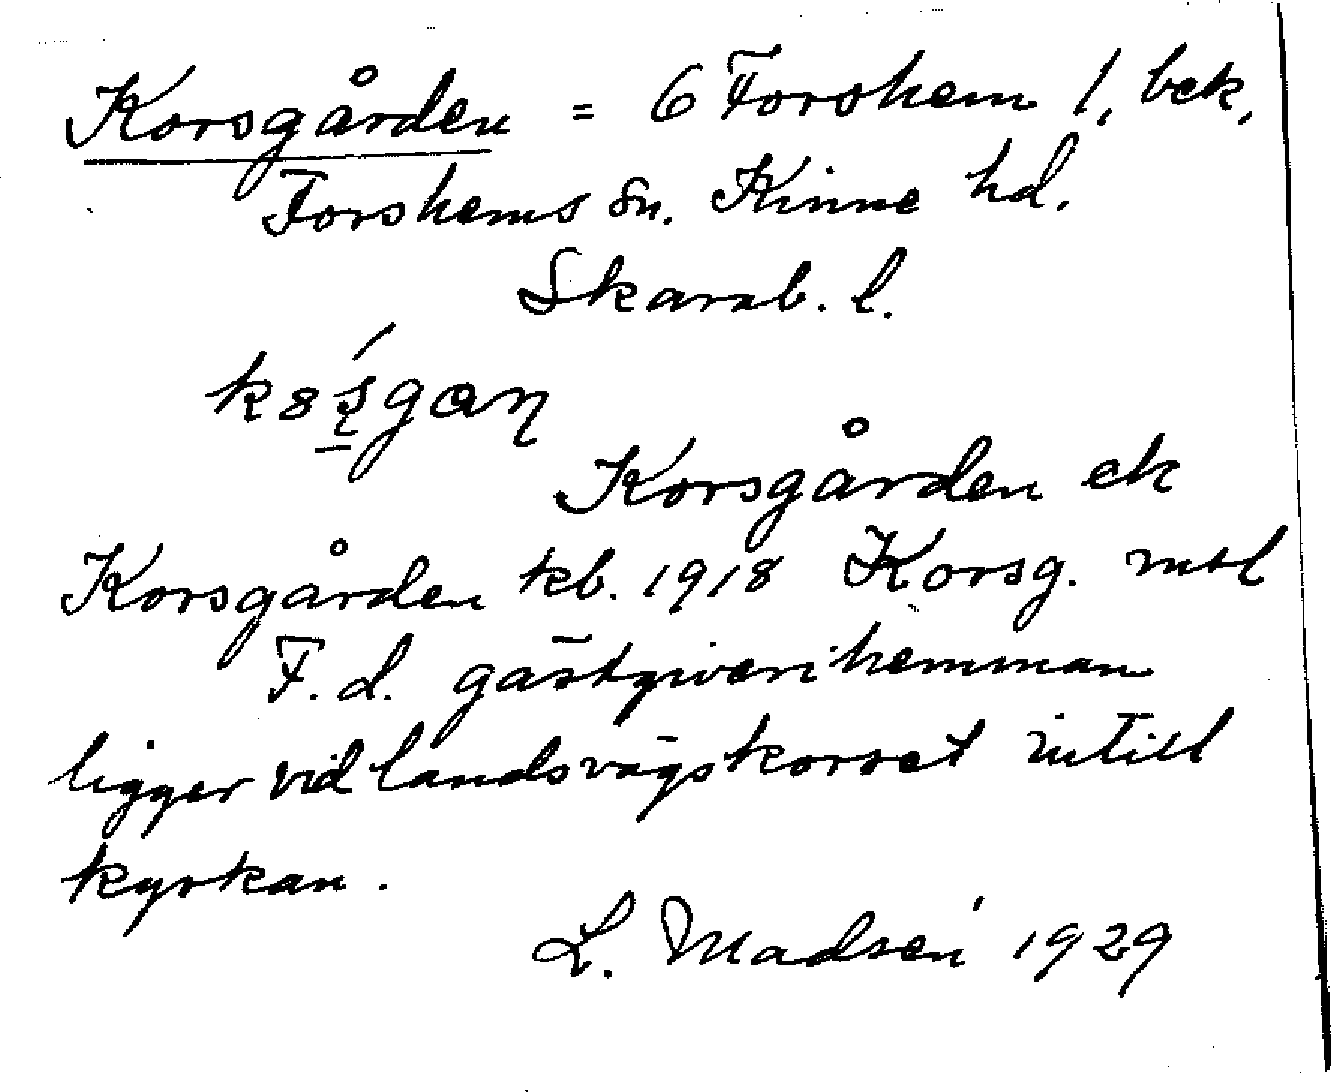 Korsgården = 6 Forshem 1, bek,
Forshems sn. Kinne hd.
Skarab. l.
Korsgården ek
Korsgården kb. 1918 Korsg. mtl
F. d. gästgiverihemman
ligger vid landsvägskorset intill
kyrkan.
L. Madsén 1929